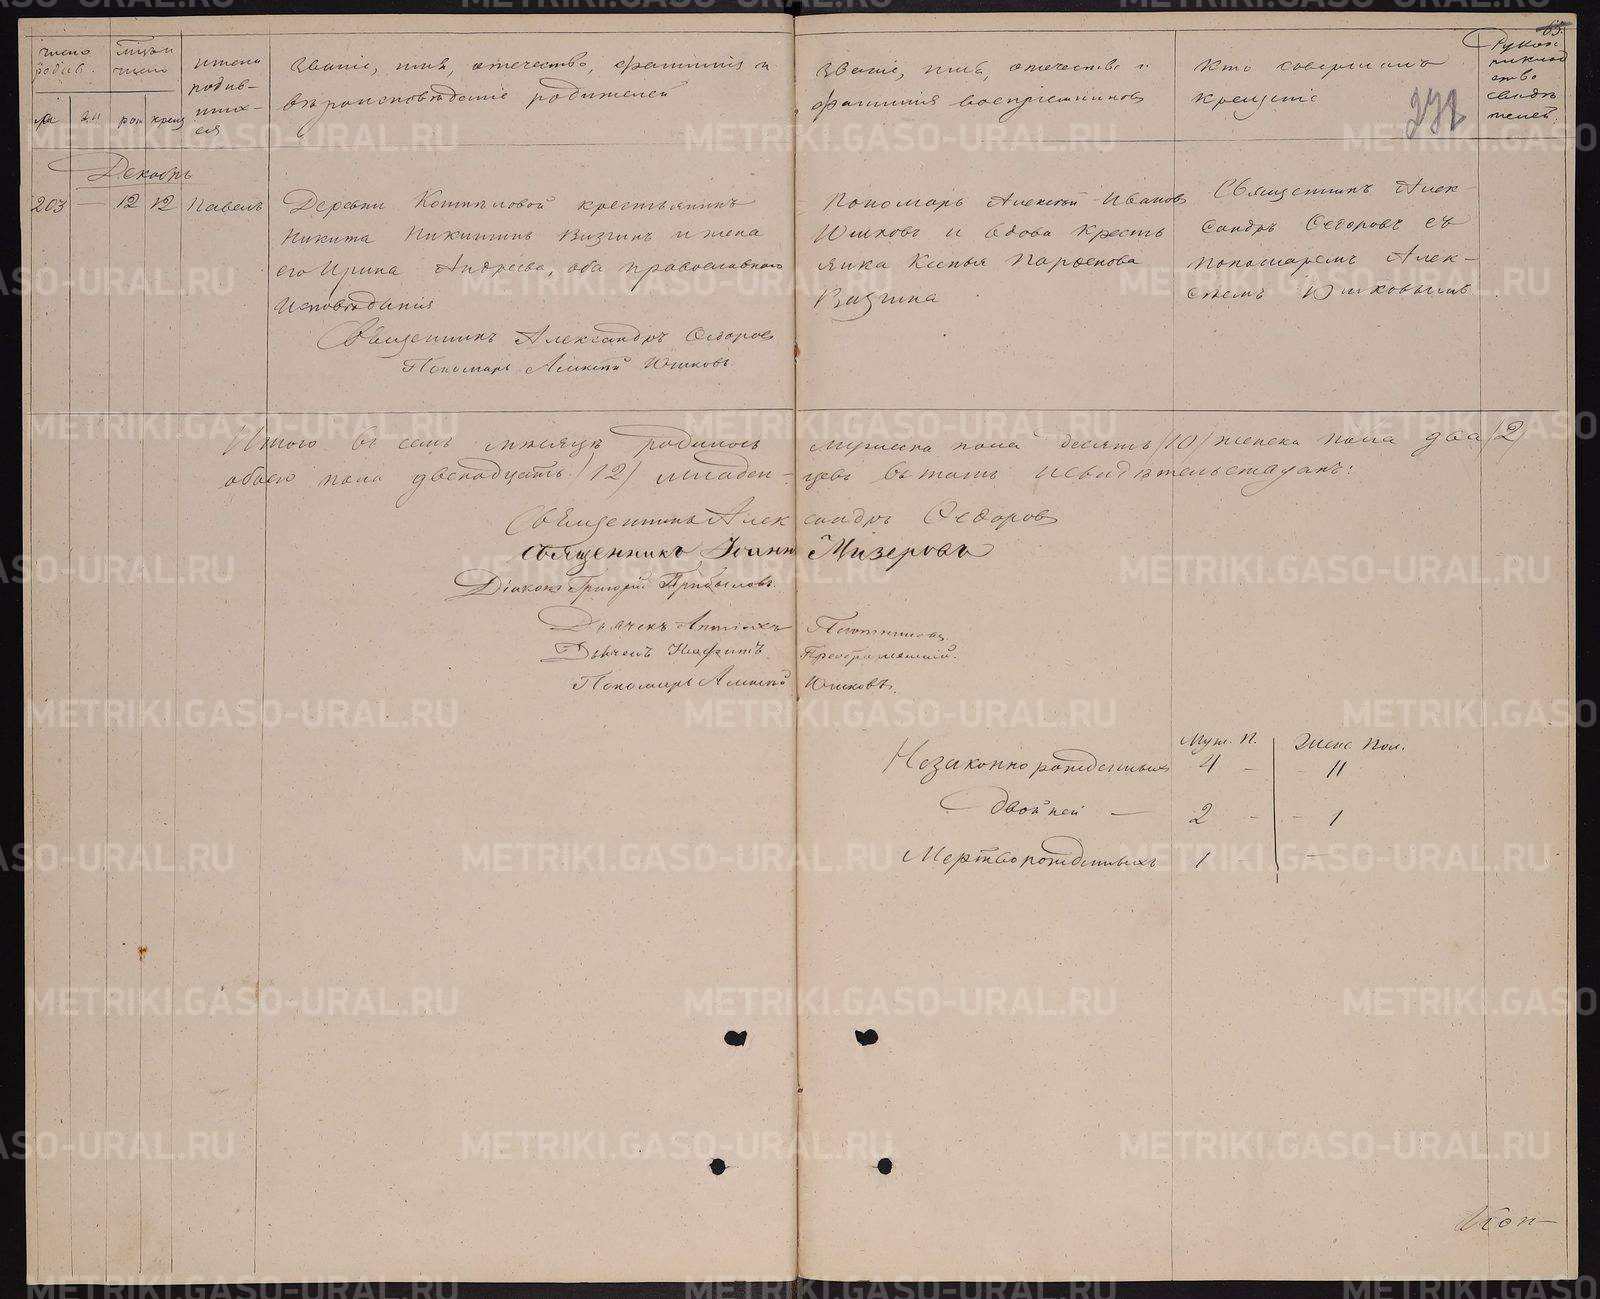 число родив.
мѣсяц и число
имена родив-шихся
Званіе, имя, отечество, фамилія и
вѣроисповѣданіе родителей
Званіе, имя, отечество и
фамилія воспріемниковъ
Кто совершалъ
крещеніе
Рукоприкладство свидѣтелей
65.
272
Декабрь
203 — 12 12 Павелъ
Деревни крестьянинъ
Никита Никитинъ Визгинъ и жена
его Ирина Андреева, оба православнаго
исповѣданія
Священникъ Александръ Ѳедоровъ
Пономарь Алексѣй Юшковъ
Пономарь Алексѣй Ивановъ
Юшковъ и вдова кресть
янка Ксенья Парѳенова
Визгина
Священникъ Алек-
сандръ Ѳедоровъ съ
пономаремъ Алек-
сѣемъ Юшковымъ
Итого въ семъ мѣсяцѣ родилось мужеска пола десять /10/ женска пола два /2/
обоего пола двенадцать /12/ младен-цевъ въ томъ и свидѣтельствуемъ:
Священникъ Александръ Ѳедоровъ
Священникъ Іоаннъ Мизеровъ
Діаконъ Григорій Прибыловъ
Дьячекъ
Дьячекъ Преображенскій.
Пономарь Алексѣй Юшковъ.
Муж. П. Женс. Пол.
Незаконнорожденныхъ 4 — 11
Двойней — 2 — 1
Мертворожденныхъ 1 —
METRIKI.GASO-URAL.RU